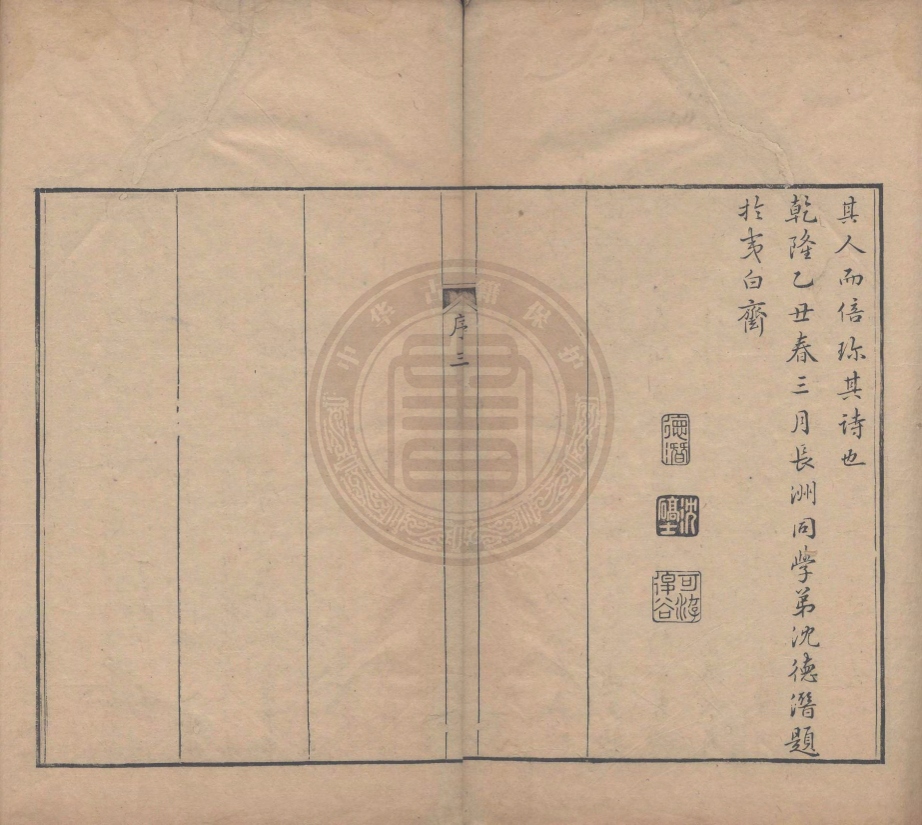 其人而倍珎其詩也
乾隆乙丑春三月長洲同學弟沈德潛題
於夷白齋
德潛
沈
序三
中华古籍保护